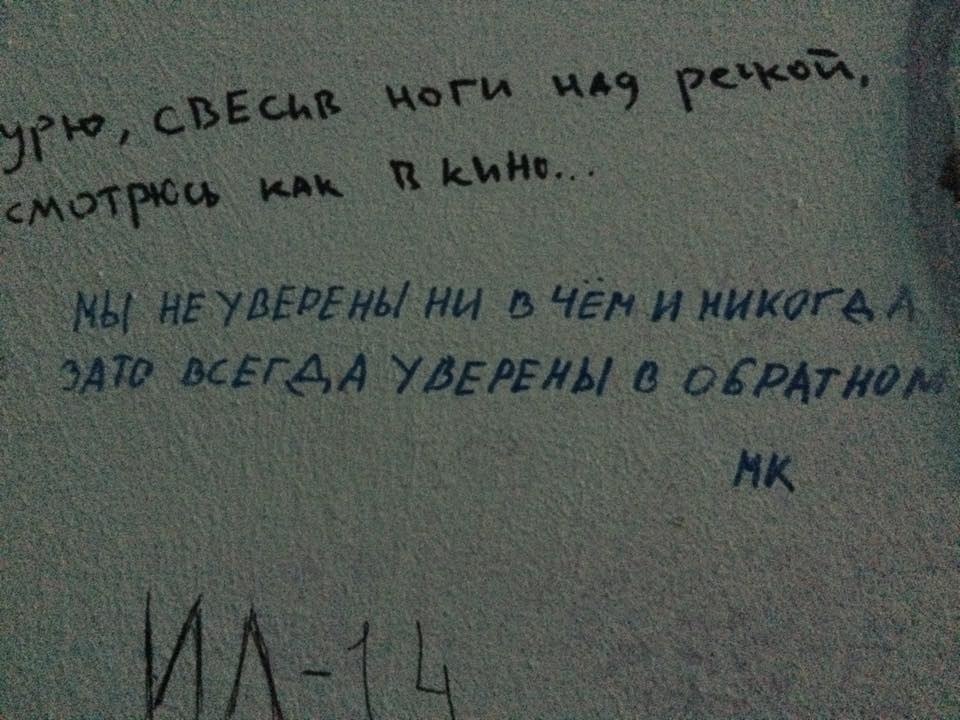 урю, свесив ноги над речкой,
смотрюсь как в кино...
МЫ НЕ УВЕРЕНЫ НИ В ЧЁМ И НИКОГДА
ЗАТО ВСЕГДА УВЕРЕНЫ В ОБРАТНОМ
МК
ИЛ-14